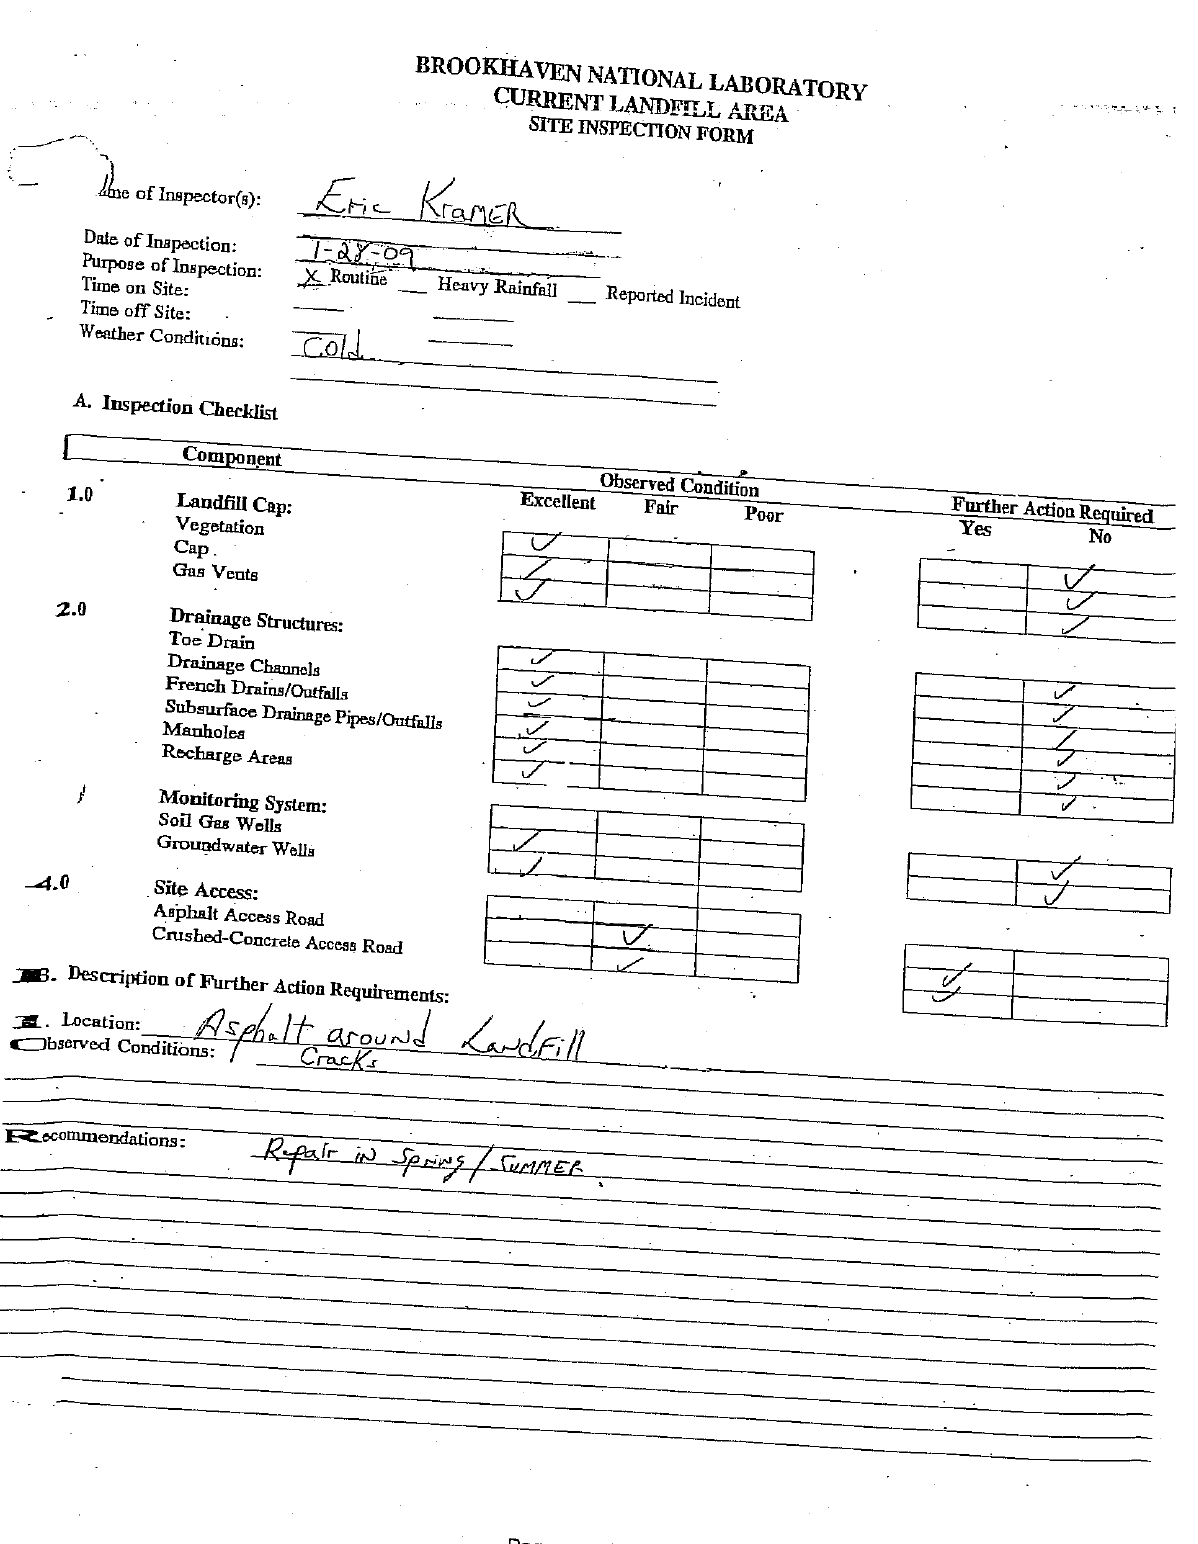 BROOKHAVEN NATIONAL LABORATORY
CURRENT LANDFILL AREA
SITE INSPECTION FORM
of Inspector(s): Eric KramER
Date of Inspection: 1-28-09
Purpose of Inspection: X Routine ___ Heavy Rainfall ___ Reported Incident
Time on Site:
Time off Site:
Weather Conditions: Cold
A. Inspection Checklist
Component Observed Condition Further Action Required
Excellent Fair Poor Yes No
1.0 Landfill Cap:
Vegetation ✓ ✓
Cap ✓ ✓
Gas Vents ✓ ✓
2.0 Drainage Structures:
Toe Drain ✓ ✓
Drainage Channels ✓ ✓
French Drains/Outfalls ✓ ✓
Subsurface Drainage Pipes/Outfalls ✓ ✓
Manholes ✓ ✓
Recharge Areas ✓ ✓
Monitoring System:
Soil Gas Wells ✓ ✓
Groundwater Wells ✓ ✓
4.0 Site Access:
Asphalt Access Road ✓ ✓
Crushed-Concrete Access Road ✓ ✓
B. Description of Further Action Requirements:
Location: Asphalt around Landfill
Observed Conditions: Cracks
Recommendations: Repair in Spring/SUMMER